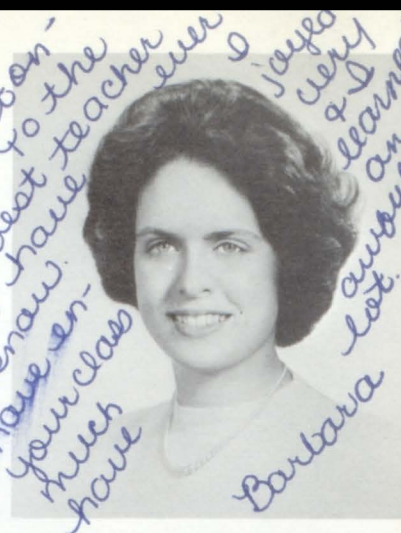 oon-
To the
est teacher
have ever
know. I
have en-joyed
your class very
much & I
have learne
an
awful
lot.
Barbara